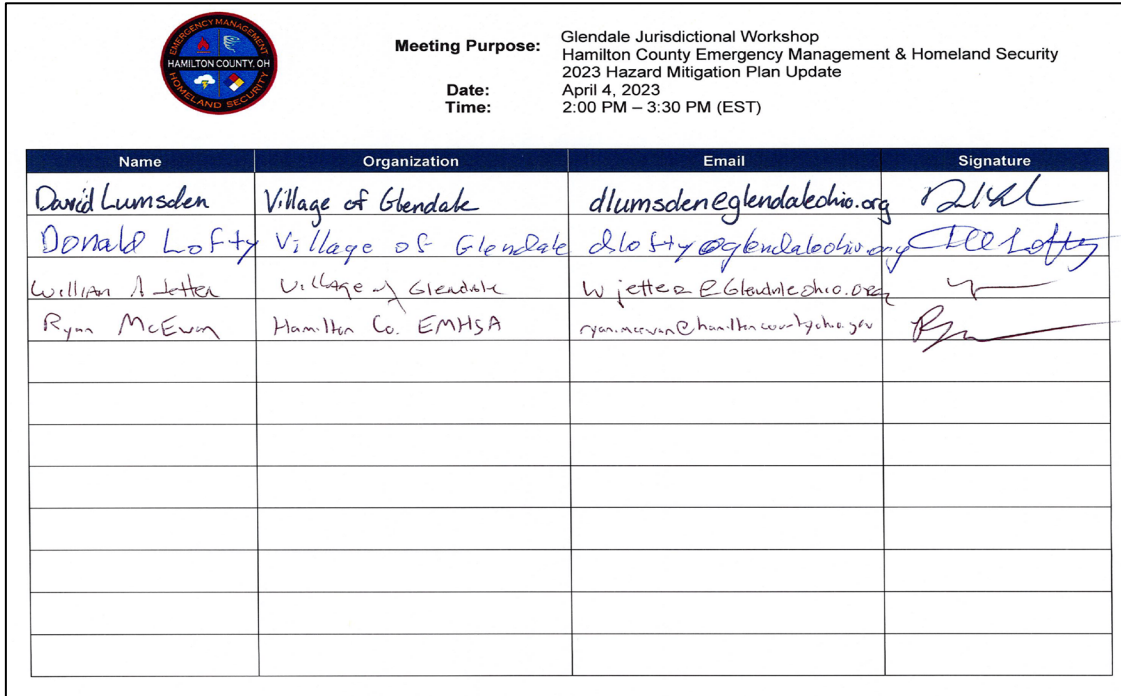 EMERGENCY MANAGEMENT
HAMILTON COUNTY, OH
HOMELAND SECURITY
Meeting Purpose: Glendale Jurisdictional Workshop
Hamilton County Emergency Management & Homeland Security
2023 Hazard Mitigation Plan Update
Date: April 4, 2023
Time: 2:00 PM – 3:30 PM (EST)
Name Organization Email Signature
David Lumsden Village of Glendale dlumsden@glendaleohio.org
Donald Lofty Village of Glendale dlofty@glendaleohio.org Lofty
William Jetter Village of Glendale wjetter@Glendaleohio.org
Ryan McEwan Hamilton Co. EMHSA ryan.mcewan@hamiltoncountyohio.gov